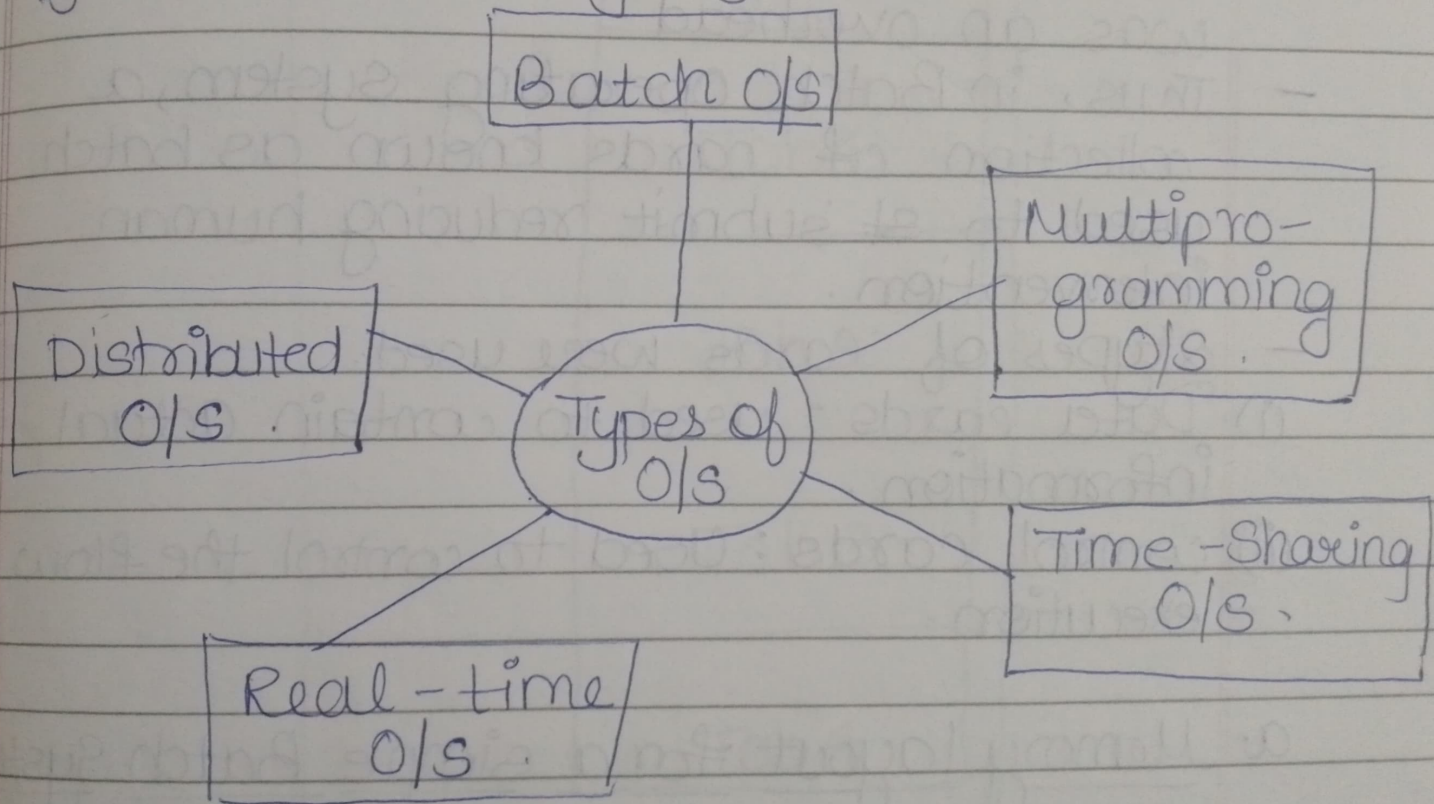 Batch O/S
Multipro-
gramming
O/S.
Distributed
O/S.
Types of
O/S
Time-Sharing
O/S.
Real-time
O/S.